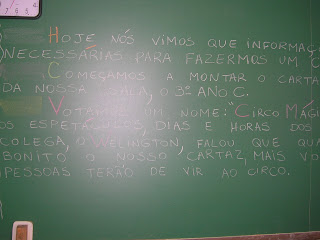 HOJE NÓS VIMOS QUE INFORMAÇ
NECESSÁRIAS PARA FAZERMOS UM
COMEÇAMOS A MONTAR O CARTA
DA NOSSA SALA, O 3º ANO C.
VOTAMOS UM NOME: "CIRCO MÁGI
OS ESPETÁCULOS, DIAS E HORAS DOS
COLEGA, O WELINGTON, FALOU QUE QUA
BONITO O NOSSO CARTAZ, MAIS VO
PESSOAS TERÃO DE VIR AO CIRCO.